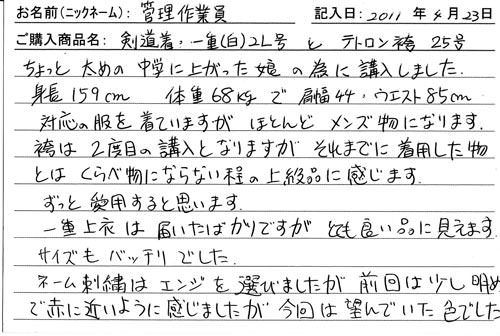 お名前(ニックネーム): 管理作業員 記入日: 2011 年 4 月 23日
ご購入商品名: 剣道着・一重(白)2L号 と テトロン袴 25号
ちょっと 太めの 中学に上がった 娘 の 為 に 講入しました.
身長 159cm 体重 68Kg で 肩幅 44・ウエスト 85cm
対応の服を 着ていますが ほとんど メンズ物になります.
袴は 2度目の 講入と なりますが それまでに 着用した物
とは くらべ物にならない程の 上級品に 感じます.
ずっと 愛用すると思います.
一重上衣 は 届いたばかりですが とても 良い 品に 見えます.
サイズも バッチリ でした.
ネーム 刺繍は エンジ を 選びましたが 前回は 少し 明め
で 赤に 近いように 感じましたが 今回は 望んでいた 色でした